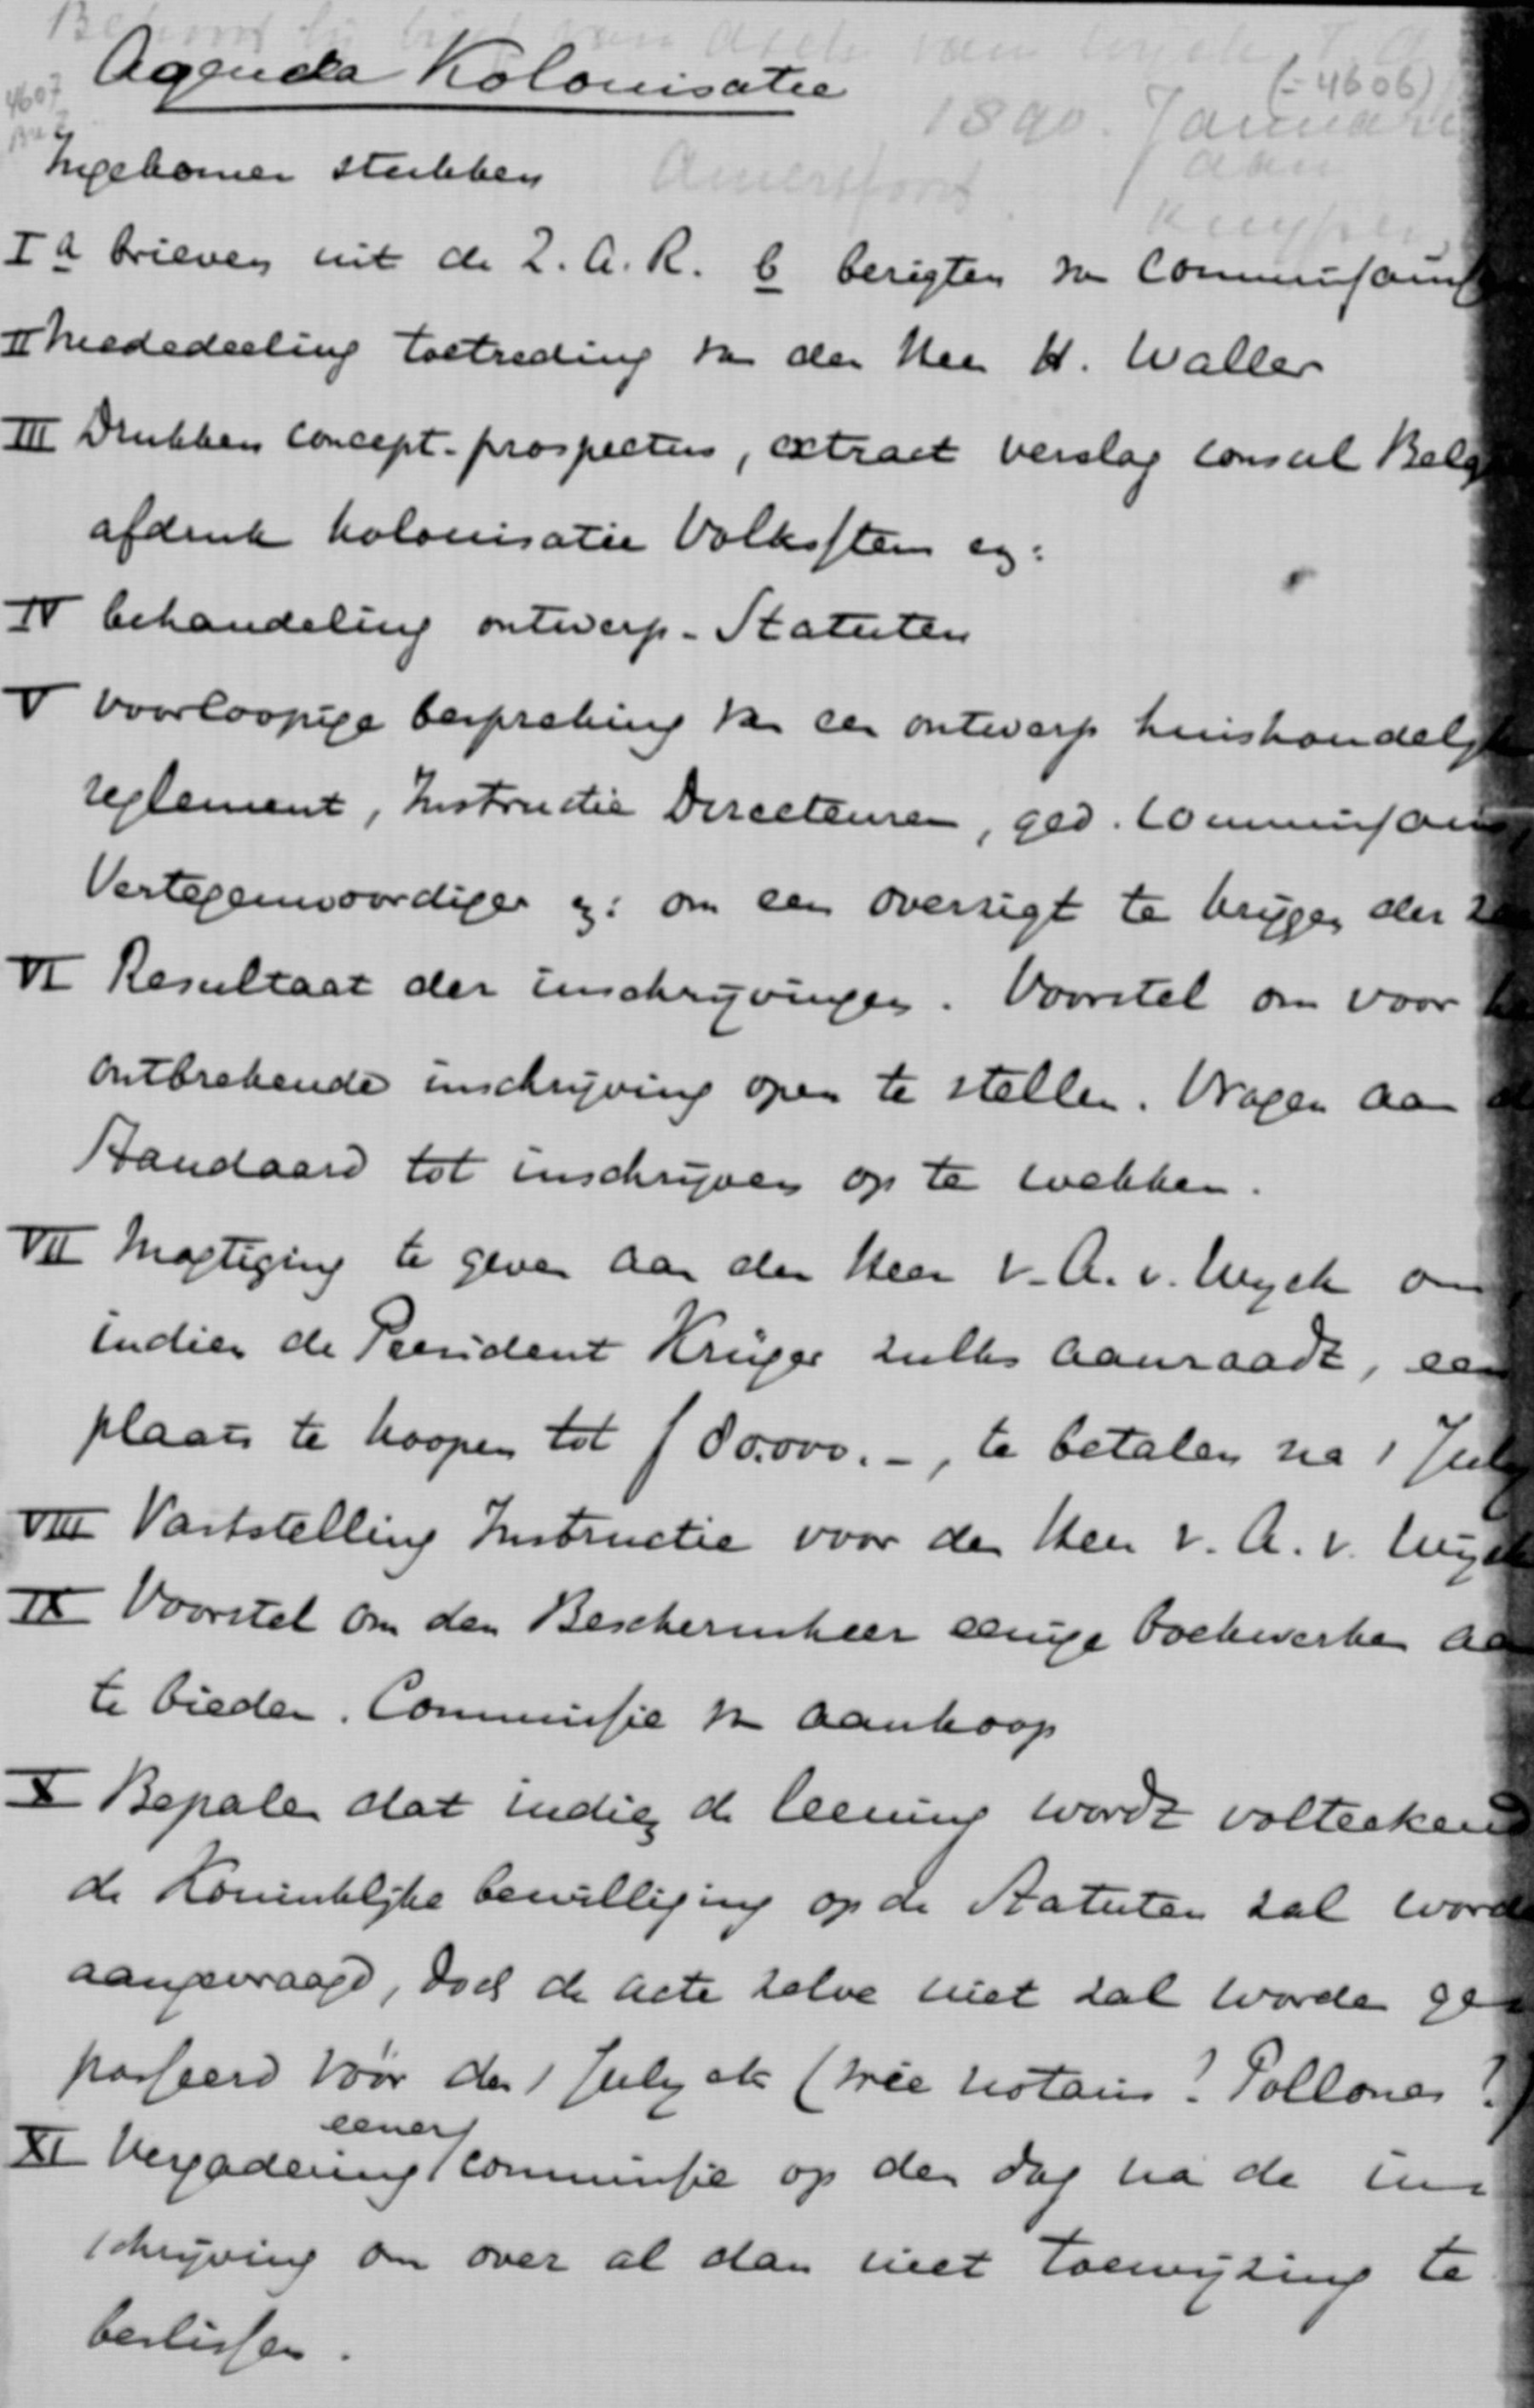 Agenda Kolonisatie
(=4606)
4607
1890. Januari
aan
Kuyper
Amersfoort
Ingekomen stukken
I a brieven uit de Z. A. R. b berigten v. Commissaris
II Mededeeling toetreding van den Heer H. Waller
III Drukken concept-prospectus, extract verslag consul Belg
afdruk kolonisatie Volksstem enz:
IV behandeling ontwerp-Statuten
V voorloopige bespreking van een ontwerp huishoudelijk
reglement, Instructie Directeuren, ged. Commissaris,
Vertegenwoordiger enz: om een overzigt te krijgen der
VI Resultaat der inschrijvingen. Voorstel om voor
ontbrekende inschrijving open te stellen. Vragen aan
Standaard tot inschrijven op te wekken.
VII Magtiging te geven aan den Heer v. A. v. Wijck om
indien de President Krüger zulks aanraadt, een
plaats te koopen tot f 80.000.-, te betalen na 1 July
VIII Vaststelling Instructie voor den Heer v. A. v. Wijck
IX Voorstel om den Beschermheer eenige boekwerken aan
te bieden. Commissie v. aankoop
X Bepalen dat indien de leening wordt volteekend
de Koninklijke bewilliging op de Statuten zal worde
aangevraagd, doch de acte zelve niet zal worden ge
passeerd vóór den 1 July ek (wie notaris? Pollones?)
XI Vergadering eener Commissie op den dag na de in
schrijving om over al dan niet toewijzing te
beslissen.